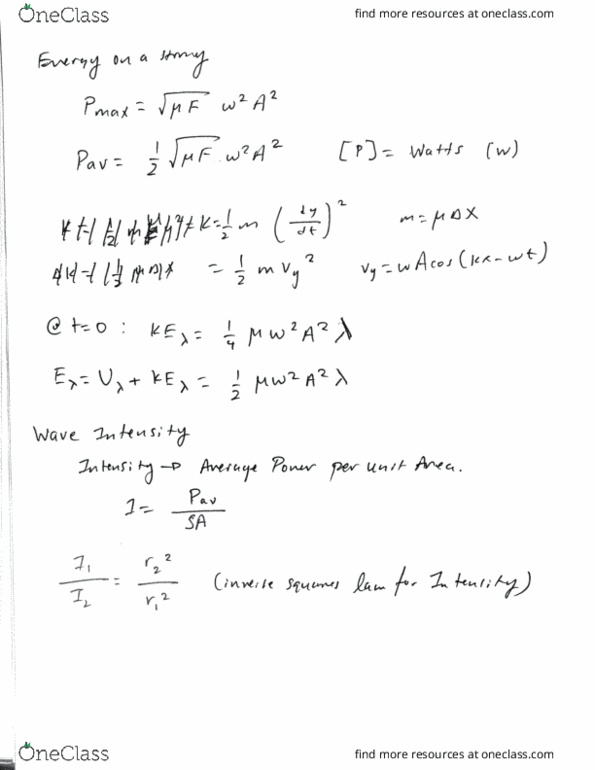 OneClass find more resources at oneclass.com
Energy on a string
Pmax = √μF ω²A²
Pav = 1/2 √μF · ω²A² [P] = Watts (W)
K = 1/2 m (dy/dt)² m = μΔX
= 1/2 m vy² vy = ωA cos(kx - ωt)
@ t=0 : KEλ = 1/4 μω²A²λ
Eλ = Uλ + KEλ = 1/2 μω²A²λ
Wave Intensity
Intensity → Average Power per unit Area.
I = Pav/SA
I₁/I₂ = r₂²/r₁² (inverse squares law for Intensity)
OneClass find more resources at oneclass.com